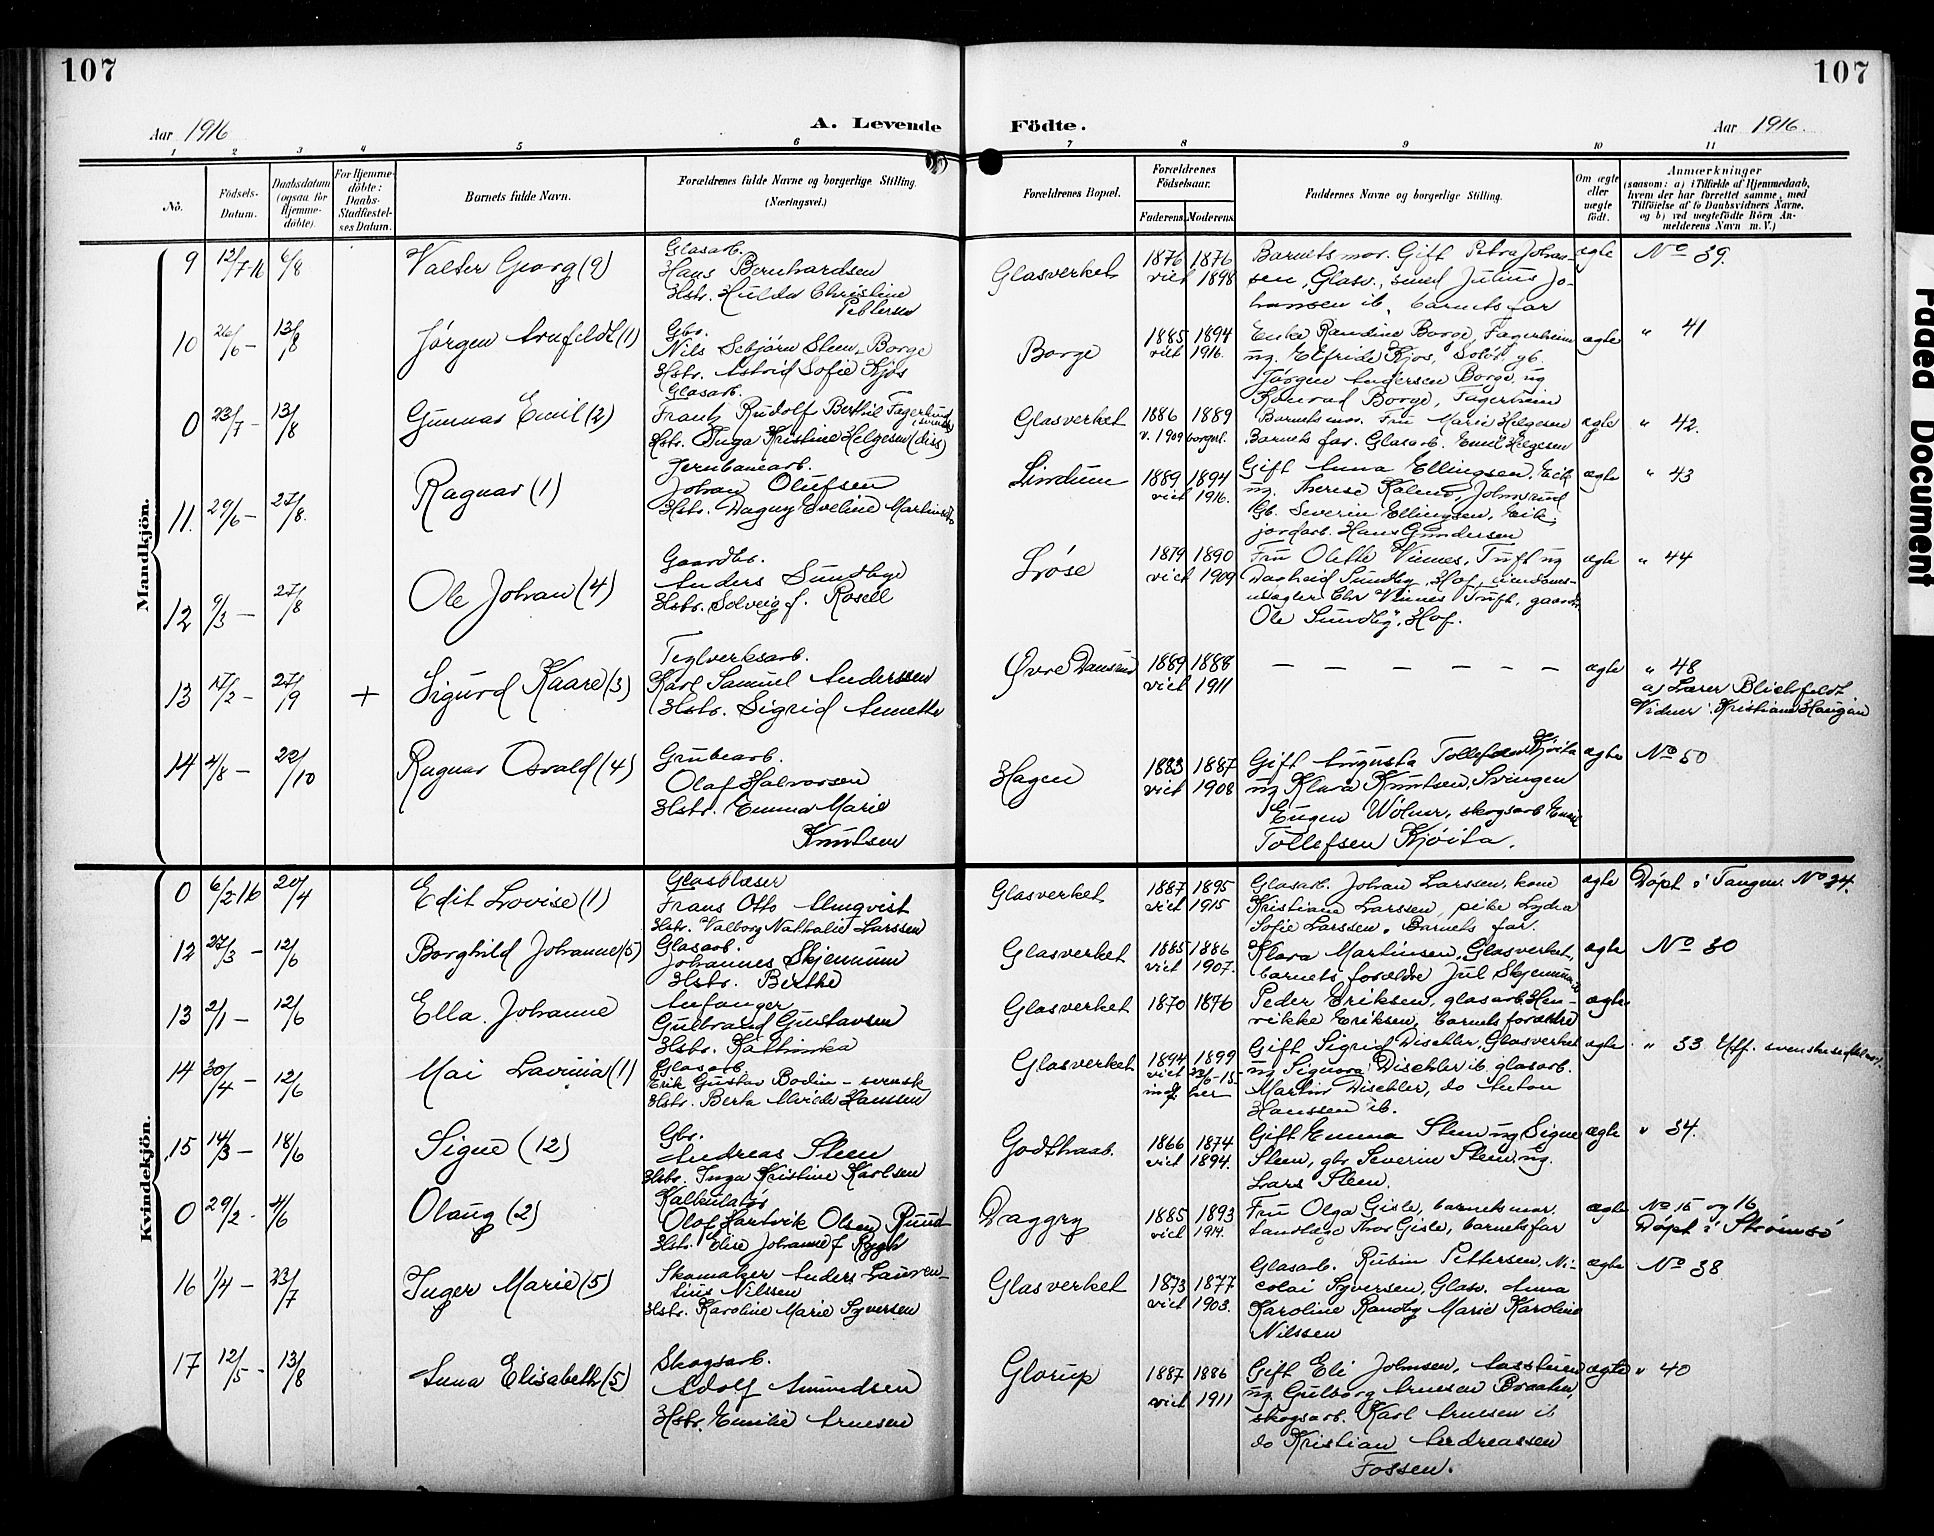 107
107
Aar 1916
A. Levende
Födte.
Aar 1916.
1 2 3 4 5 6 7 8 9 10 11
No.
Födsels-Datum.
Daabsdatum (ogsaa for Hjemme-döbte).
For Hjemme-döbte: Daabs-Stadfæstel-ses Datum.
Barnets fulde Navn.
Forældrenes fulde Navne og borgerlige Stilling.
(Næringsvei.)
Forældrenes Bopæl.
Forældrenes Födselsaar.
Faderens. Moderens.
Faddernes Navne og borgerlige Stilling.
Om ægte eller uægte födt.
Anmærkninger
(saasom: a) i Tilfælde af Hjemmedaab,
hvem der har forrettet samme, med
Tilföielse af to Daabsvidners Navne,
og b) ved uægtefödte Börn An-
melderens Navn m. V.)
Mandkjön.
9 12/7-16 6/8 Valter Georg (9)
Glasarb.
Hans Bernhardsen
Hstr. Hulda Christine
Pettersen
Glasverket
1876 1876
viet 1898
Barnets mor. Gift Petra Johan-
sen, Glasv., smed Julius Jo-
hansen ib, barnets far
ægte
No 39.
10 26/6 - 13/8 Jørgen Arnfeldt (1)
Gbr.
Nils Sebjørn Steen-Borge
Hstr. Astrid Sofie Kjøs
Borge
1885 1894
viet 1916.
Enke Randine Borge, Fagerheim
ug. Elfride Kjøs, Solør, gb.
Jørgen Andersen Borge, ug
Konrad Borge, Fagerheim
ægte
" 41
0 23/7 - 13/8 Gunnar Emil (2)
Glasarb.
Frantz Rudolf Berthil Fagerlund, svensk
Hstr. Inga Kristine Helgesen (diss)
Glasverket
1886 1889
v. 1909 borgerl.
Barnets mor. Fru Marie Helgesen
Barnets far. Glasarb. Emil Helgesen
ægte
" 42.
11. 29/6 - 27/8. Ragnar (1)
Jernbanearb.
Johan Olufsen
Hstr. Dagny Eveline Martinsen
Lindum
1889 1894
viet 1916.
Gift Anna Ellingsen, Eik
ug. Therese Kalnes, Johnsrud
Gb. Severin Ellingsen, Eik,
jordarb. Hans Gundersen
ægte
" 43
12 9/3 - 27/8 Ole Johan (4)
Gaardbr.
Anders Sundbye
Hstr. Solveig f. Rosell
Frøse
1879 1890
viet 1909
Fru Olette Vinnes, Tuft ug
Dagheid Sundby, Hof, eiendoms-
mægler Chr Vinnes Tuft, gaardbr.
Ole Sundby, Hof.
ægte
" 44
13 17/2 - 27/9 + Sigurd Kaare (3)
Teglverksarb.
Karl Samuel Anderssen
Hstr. Sigrid Annette
Øvre Dansrud
1889 1888
viet 1911
— — — — — — —
ægte
" 48
a) Lærer Blichfeldt
Vidner: Kristiane Haugan
14 4/8 - 22/10 Ragnar Osvald (4)
Grubearb.
Olaf Halvorsen
Hstr. Emma Marie
Knutsen
Hagen
1883 1887
viet 1908
Gift Augusta Tollefsen Kjøita
ug Klara Knutsen, Svingen
Eugen Wolner, skogsarb Emil
Tollefsen Kjøita.
ægte
No 50
Kvindekjön.
0 6/2 16 20/4 Edit Lovise (1)
Glasblæser
Frans Otto Almqvist
Hstr. Valborg Nathalie Larssen
Glasverket
1887 1895
viet 1915
Glasarb. Johan Larssen, kone
Kristiane Larssen, pike Lydia
Sofie Larssen, Barnets far.
ægte
Døpt i Tangen No 34.
12 27/3 - 12/6 Borghild Johanne (5)
Glasarb.
Johannes Skjennum
Hstr. Birthe
Glasverket
1885 1886
viet 1907.
Klara Martinsen, Glasverket,
barnets forældre Jul Skjennum ib
ægte
No 30
13 2/1 - 12/6 Ella Johanne
Anfanger
Gulbrand Gustavsen
Hstr. Kathinka
Glasverket
1870 1876
Peder Eriksen, glasarb, Hen-
rikke Eriksen, barnets forældre
ægte
14 30/4 - 12/6 Mai Lavinia (1)
Glasarb.
Erik Gustav Bodin - svensk
Hstr. Berta Alvide Hanssen
Glasverket
1894 1899
viet 23/5-15
her
Gift Sigrid Dischler, Glasverket
ug Signora Dischler ib. glasarb.
Martin Dischler, do Anton
Hanssen ib.
ægte
" 33
15 14/3 - 18/6 Signe (12)
Gbr.
Andreas Steen
Hstr. Inga Kristine Karlsen
Godthaab.
1866 1874
viet 1894.
Gift Emma Steen ug Signe
Steen, gbr Severin Steen, ug.
Lars Steen.
ægte
" 34.
0 29/2 - 4/6 Olaug (2)
Kalkulatør
Olaf Hartvik Olsen Ruud-
Hstr. Elise Johanne f Rygh
Daggry
1885 1893
viet 1914.
Fru Olga Gisle, barnets mor.
Tandlæge Thor Gisle, barnets far
ægte
No 15 og 16
Døpt i Strømsø
16 1/4 - 23/7 Inger Marie (5)
Skomaker Anders Lauren-
tius Nilssen
Hstr. Karoline Marie Syversen
Glasverket
1873 1877
viet 1903.
Glasarb. Rubin Pettersen, Ni-
colai Syversen, Glasv. Anna
Karoline Randby Marie Karoline
Nilssen
ægte
No 38
17 12/5 - 13/8 Anna Elisabeth (5)
Skogsarb.
Adolf Amundsen
Hstr. Emilie Arnesen
Glorup
1887 1886
viet 1911
Gift Eli Johnsen, Aasstuen
ug. Gulborg Arnesen Braaten,
skogsarb. Karl Arnesen ib
do Kristian Andreassen
Fossen.
ægte
" 40
Paged Document